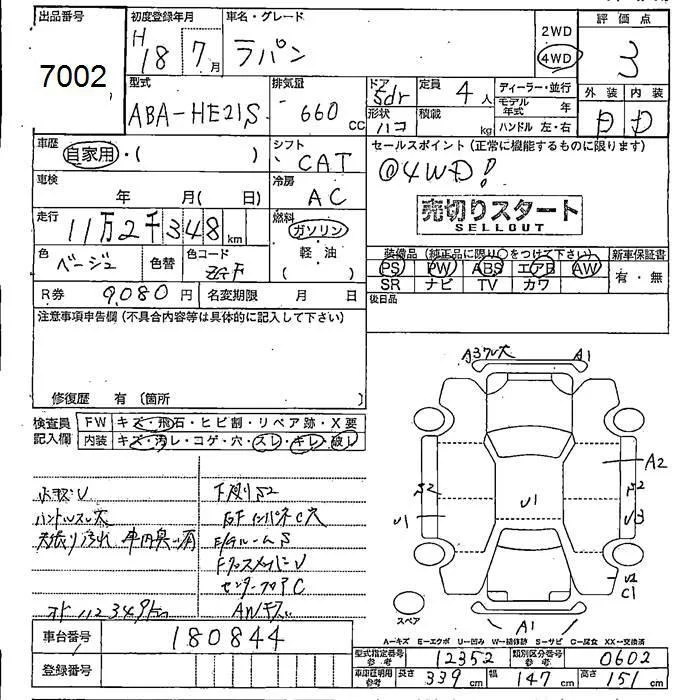 出品番号
7002
初度登録年月
H 18 7月
車名・グレード
ラパン
2WD
4WD
評価点
3
型式
ABA-HE21S
排気量
660 cc
ドア
5dr
形状
ハコ
定員
4人
積載
kg
ディーラー・並行
モデル年式 年
ハンドル 左・右
外装 内装
D D
車歴
自家用・( )
シフト
CAT
セールスポイント(正常に機能するものに限ります)
@4WD!
車検
年 月( 日)
冷房
AC
売切りスタート
SELLOUT
走行
11万2千348km
燃料
ガソリン
軽・油
( )
色
ベージュ
色替
色コード
ZGF
装備品(純正品に限り○をつけて下さい)
新車保証書
PS PW ABS エアB AW
SR ナビ TV カワ
有・無
R券 9,080円
名変期限 月 日
後日品
注意事項申告欄(不具合内容等は具体的に記入して下さい)
修復歴 有(箇所 )
検査員記入欄
FW キズ・飛石・ヒビ割・リペア跡・X要
内装 キズ・汚レ・コゲ・穴・スレ・キレ・破レ
下廻りS2
ハンドルスレ大
天張り汚れ
E/GルームS
FクロスメンバーV
センターフロアC
AWキズ
オド 112349km
A3 A1
A2
S2
U1
U1
S2
U3
U2
C1
A1
スペア
A―キズ E―エクボ U―凹み W―補修跡 S―サビ C―腐食 XX―交換済
車台番号
180844
登録番号
型式指定番号 参考
12352
類別区分番号 参考
0602
車庫証明用 参考
長さ 339cm
幅 147cm
高さ 151cm